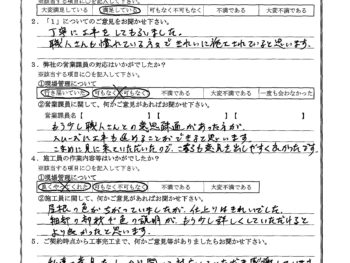 ※該当する項目に○を記入して下さい。
大変満足している 満足している 何も不満でもない 不満である 大変不満である
2．「1」についてのご意見をお聞かせ下さい。
丁寧に工事をしてもらいました。
職人さんも慣れている方できれいに施工されていると思います。
3．弊社の営業課員の対応はいかがでしたか？
※該当する項目に○を記入して下さい。
①現場管理について
行き届いていた 何もなく何もなく 不満である 大変不満である 一度も会わなかった
②営業課員に関して、何かご意見があればお聞かせ下さい。
営業課員名【 】【 】【 】
もう少し職人さんとの意思疎通があった方が、
スムーズに工事も進めることができると思います。
こまめに見に来ていただいたので、こちらも意見を出しやすく良かったです。
4．施工員の作業内容等はいかがでしたか？
※該当する項目に○を記入して下さい。
①現場管理について
良くやってくれた 不満である 大変不満である
②施工員に関して、何かご意見があればお聞かせ下さい。
屋根の色がちがっていましたが、仕上りはきれいでした。
の説明が、もう少し詳しくしていただけると
より良かったと思います。
5．ご契約時点から工事完工まで、何かご意見等がありましたらお聞かせ下さい。